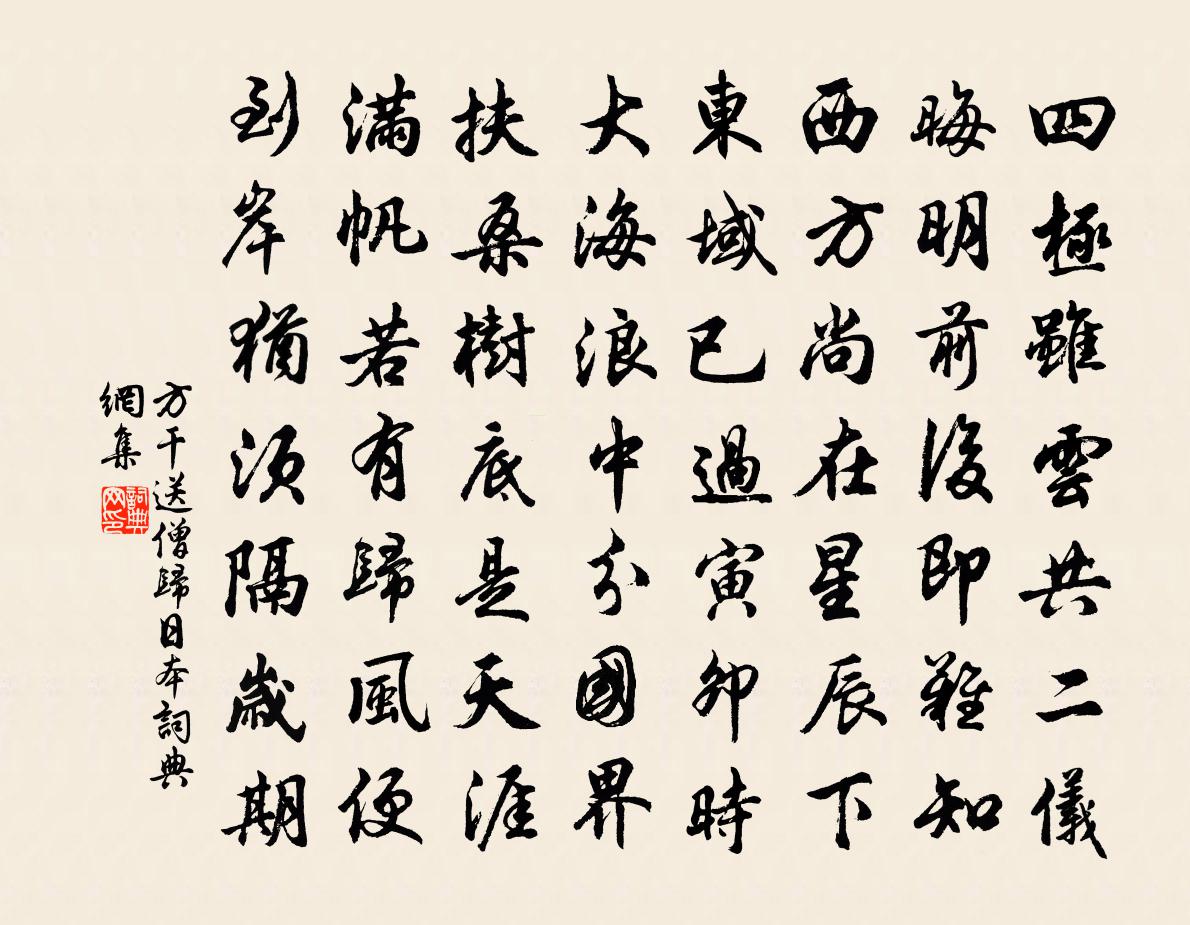 四極雖雲共二儀
晦明前後即難知
西方尚在星辰下
東域已過寅卯時
大海浪中分國界
扶桑樹底是天涯
滿帆若有歸風便
到岸猶須隔歲期
方干送僧歸日本詞典
網集
詞典
网印